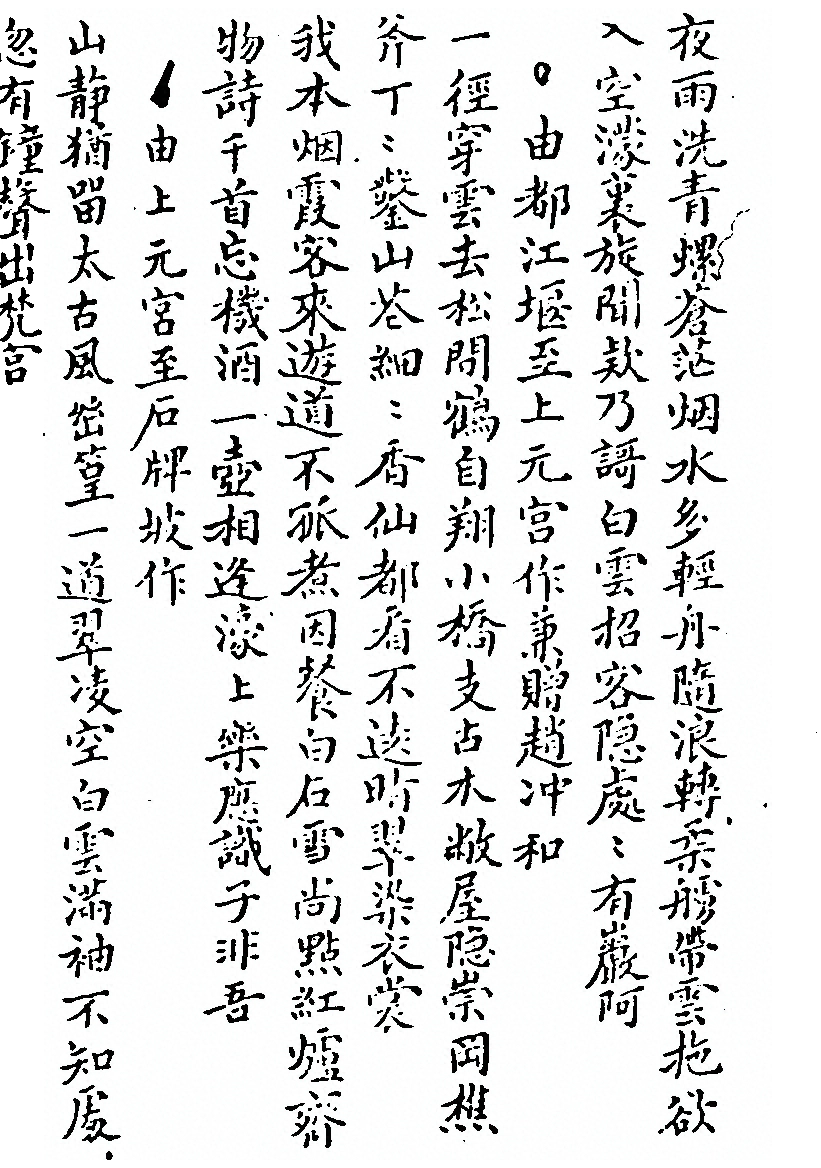 夜雨洗青螺蒼茫烟水多輕舟隨浪轉柔艣帶雲拖欲
入空濛裏旋聞欵乃謌白雲招客隐處〻有巖阿
○由都江堰至上元宫作兼贈趙冲和
一徑穿雲去松間鶴自翔小橋支占木敝屋隐崇岡樵
斧丁〻鑿山花細〻香仙都看不遠時翠染衣裳
我本烟霞客來遊道不孤煮因餐白石雪尚點紅爐齊
物詩千首忘機酒一壺相逢濠上樂應識子非吾
由上元宫至石牌坡作
山静猶留太古風密篁一道翠凌空白雲滿袖不知處
忽有鐘聲出梵宫